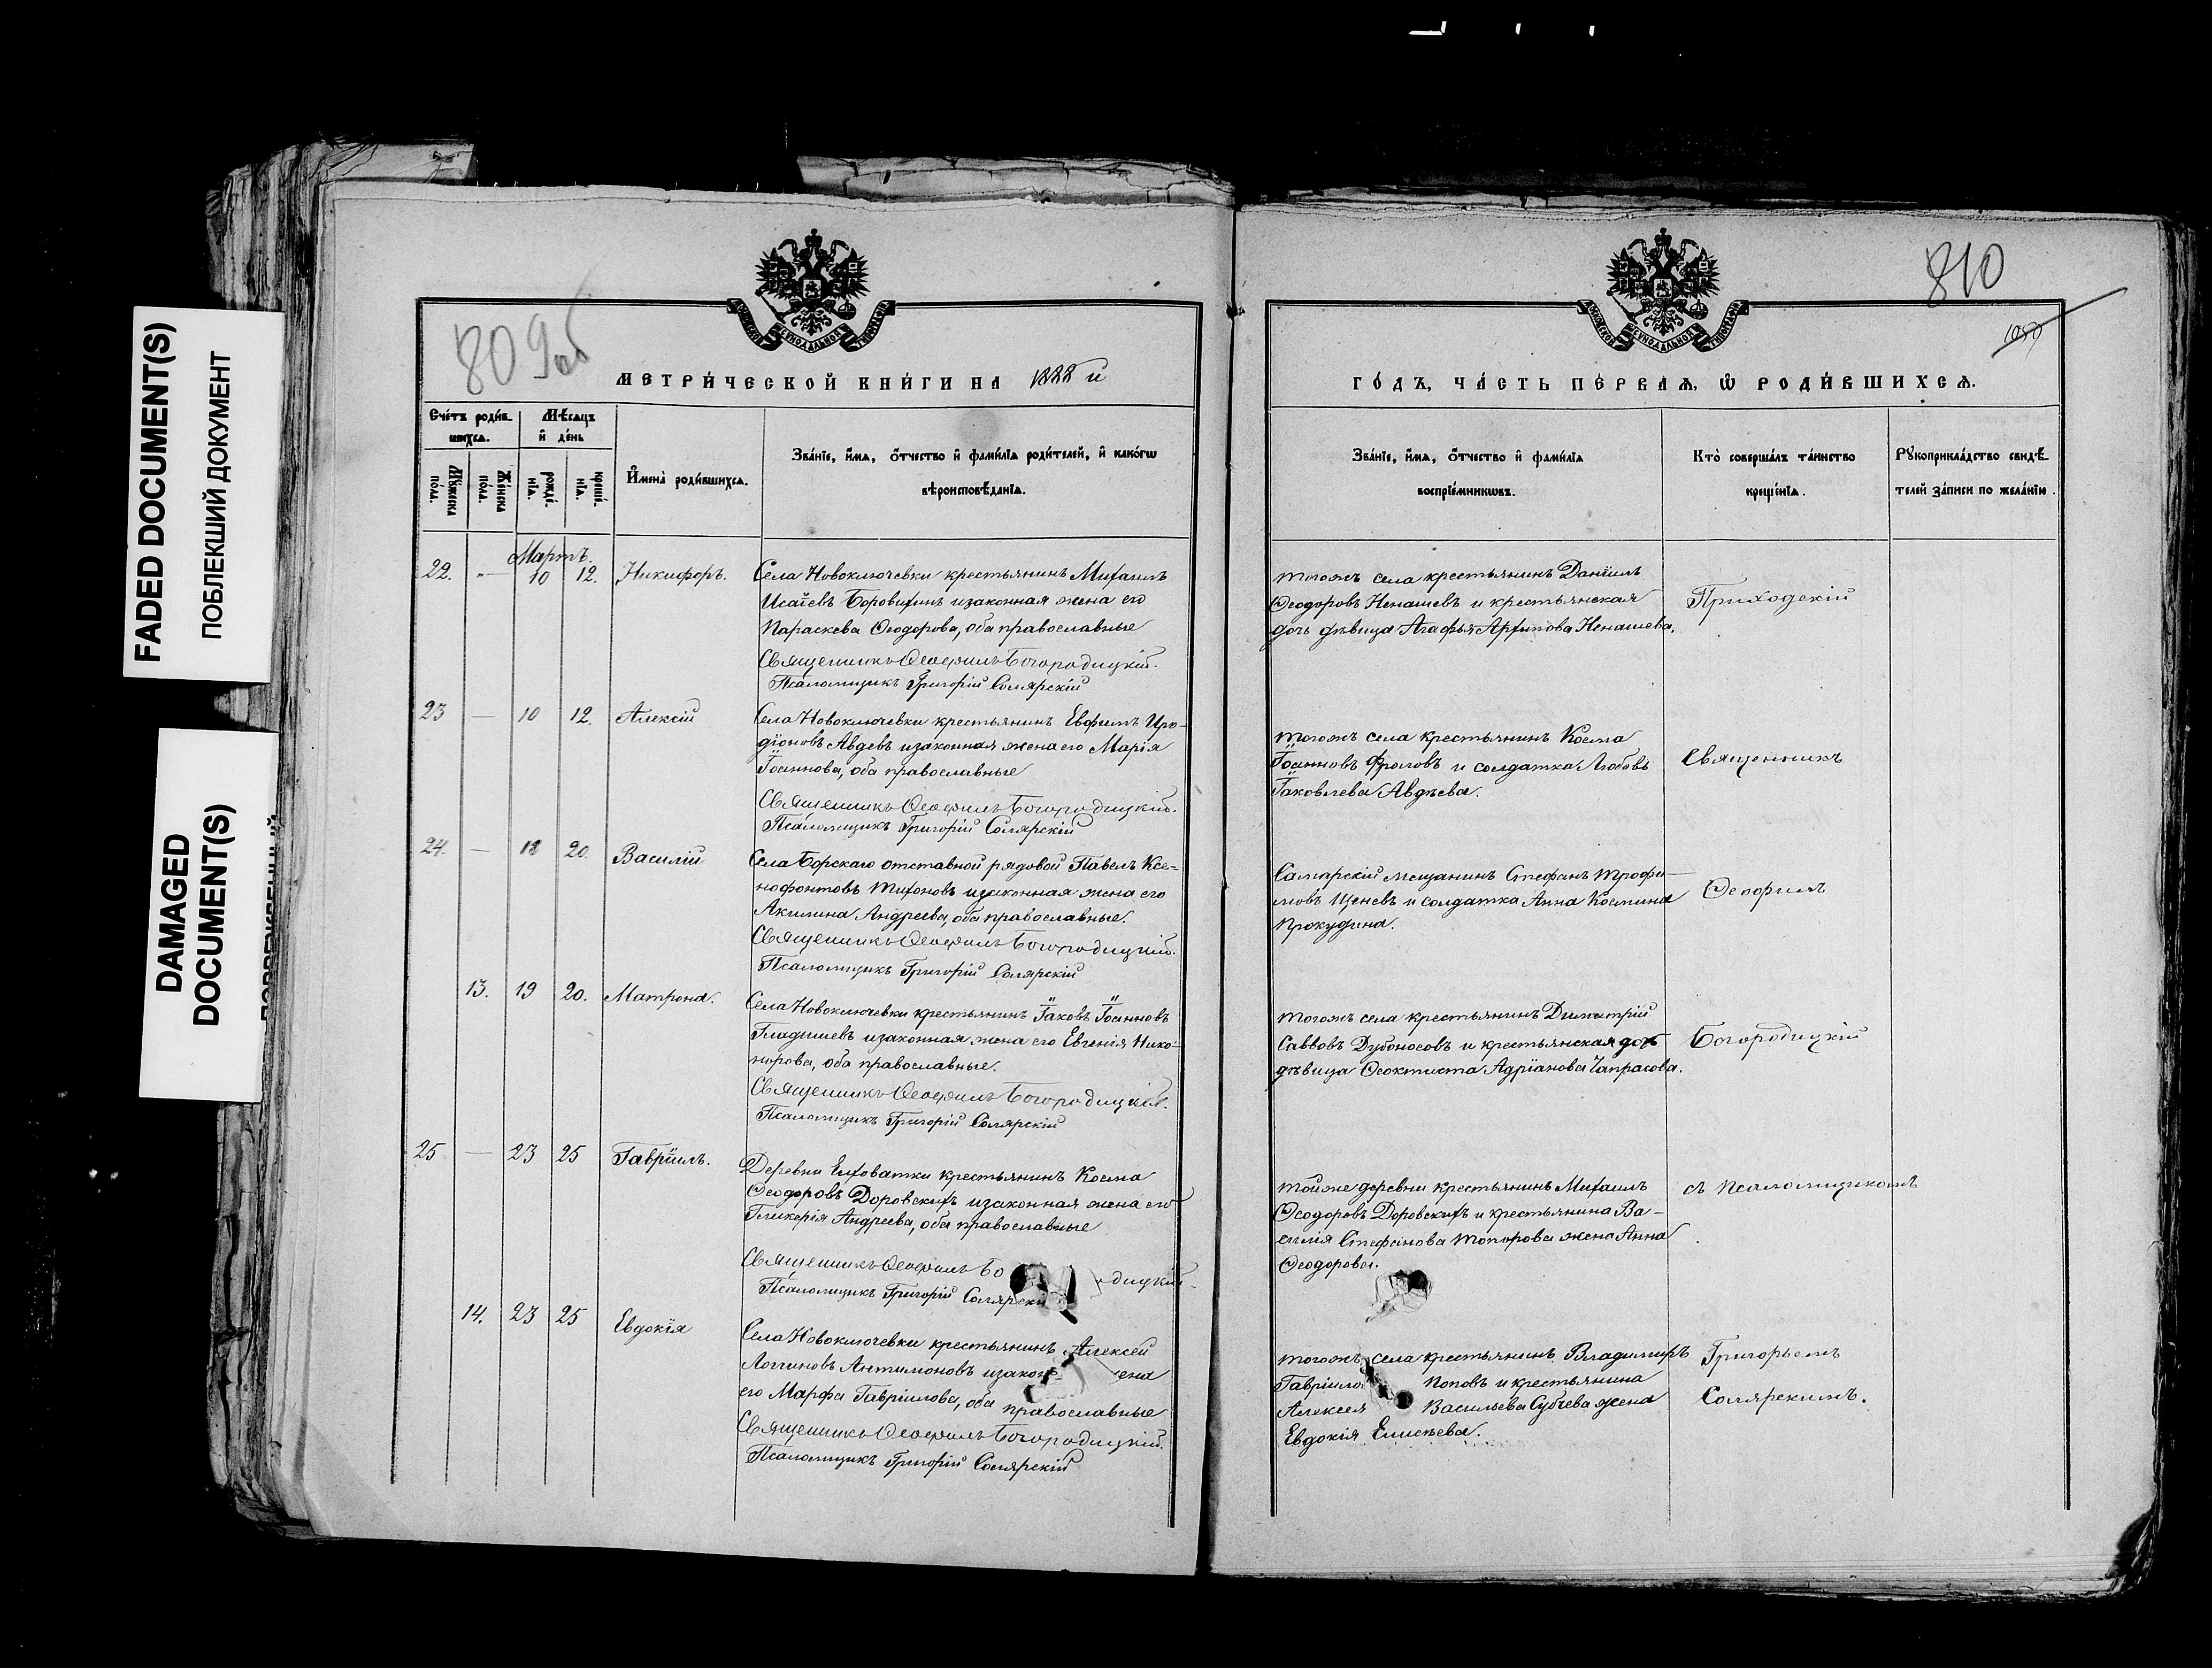 FADED DOCUMENT(S)
ПОБЛЕКШИЙ ДОКУМЕНТ
DAMAGED
DOCUMENT(S)
809об
МЕТРИ́ЧЕСКОЙ КНИ́ГИ НА 1888 й
Сче́тъ роди́в-
шихсѧ.
Мѣ́сѧцъ
и҆ де́нь
Мꙋ́жеска
по́ла.
Же́нска
по́ла.
рожде́-
нїѧ.
креще́-
нїѧ.
И҆мена̀ роди́вшихсѧ.
Зва́нїе, и҆́мѧ, ѻ҆́тчество и҆ фами́лїѧ роди́телей, и҆ како́гѡ
вѣроисповѣ́данїѧ.
Мартъ.
22. „— 10 12. Никифоръ.
Села Новоключевки крестьянинъ Михаилъ
Исаiевъ Боровихинъ изаконная жена его
Параскева Ѳеодорова, оба православные
Священникъ Ѳеофилъ Богородицкiй.
Псаломщикъ Григорiй Солярскiй
23 — 10 12. Алексiй
Села Новоключевки крестьянинъ Евфимъ Иро-
дiоновъ Авдевъ изаконная жена его Марiя
Iоаннова, оба православные
Священникъ Ѳеофилъ Богородицкiй.
Псаломщикъ Григорiй Солярскiй
24. — 18 20. Василiй
Села Борскаго отставной рядовой Павелъ Ксе-
нофонтовъ Тихоновъ изаконная жена его
Акилина Андреева, оба православные.
Священникъ Ѳеофилъ Богородицкiй.
Псаломщикъ Григорiй Солярскiй
13. 19 20. Матрона.
Села Новоключевки крестьянинъ Iаковъ Iоанновъ
Гладышевъ изаконная жена его Евгенiя Нико-
норова, оба православные.
Священникъ Ѳеофилъ Богородицкiй.
Псаломщикъ Григорiй Солярскiй
25 — 23 25 Гаврiилъ.
Деревни Елховатки крестьянинъ Косма
Ѳеодоровъ Доровскихъ изаконная жена его
Гликерiя Андреева, оба православные
Священникъ Ѳеофилъ Бо дицкiй.
Псаломщикъ Григорiй Солярскi
14. 23 25 Евдокiя
Села Новоключевки крестьянинъ Алексей
Логгиновъ Антимоновъ изакон ена
его Марфа Гаврiилова, оба православные
Священникъ Ѳеофилъ Богородицкiй.
Псаломщикъ Григорiй Солярскiй
810
1059
ГО́ДЪ, ЧА́СТЬ ПЕ́РВАѦ, Ѡ҆ РОДИ́ВШИХСѦ.
Зва́нїе, и҆́мѧ, ѻ҆́тчество и҆ фами́лїѧ
воспрїе́мникѡвъ.
Кто̀ соверша́лъ та́инство
креще́нїѧ.
Рꙋкоприкла́дство свидѣ́-
телей за́писи по жела́нїю.
тогожъ села крестьянинъ Данiилъ
Ѳеодоровъ Ненашевъ и крестьянская
дочь дѣвица Агафья Архипова Ненашева.
тогожъ села крестьянинъ Косма
Iоанновъ Фроловъ и солдатка Любовь
Iаковлева Авдѣева.
Самарскiй мещанинъ Стефанъ Трофи-
мовъ Щеневъ и солдатка Анна Космина
Прокудина.
тогожъ села крестьянинъ Димитрiй
Саввовъ Дубоносовъ и крестьянская дочь
дѣвица Ѳеоктиста Адрiанова Чапрасова.
тойже деревни крестьянинъ Михаилъ
Ѳеодоровъ Доровскихъ и крестьянина Ва-
силiя Стефанова Топорова жена Анна
Ѳеодорова.
тогожъ села крестьянинъ Владимiръ
Гаврiило Поповъ и крестьянина
Алексея Васильева Субчева жена
Евдокiя Елисѣева.
Приходскiй
Священникъ
Ѳеофилъ
Богородицкiй
съ псаломщикомъ
Григорьемъ
Солярскимъ.